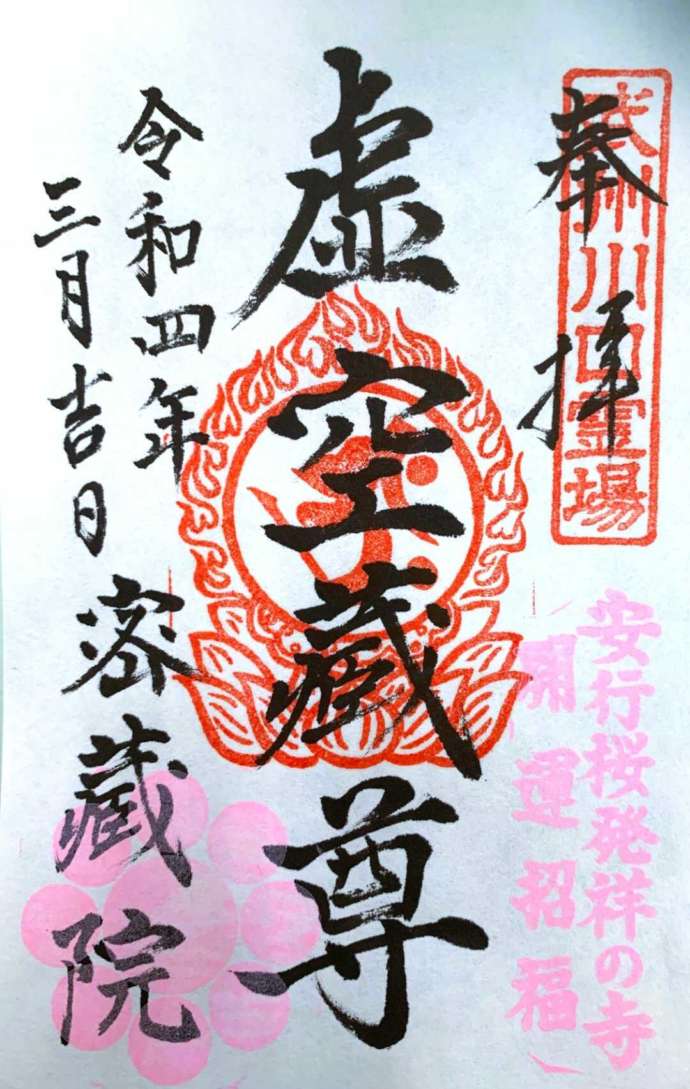 奉拝
武州川口霊場
安行桜発祥の寺
開運招福
虚空蔵尊
令和四年
三月吉日
密蔵院